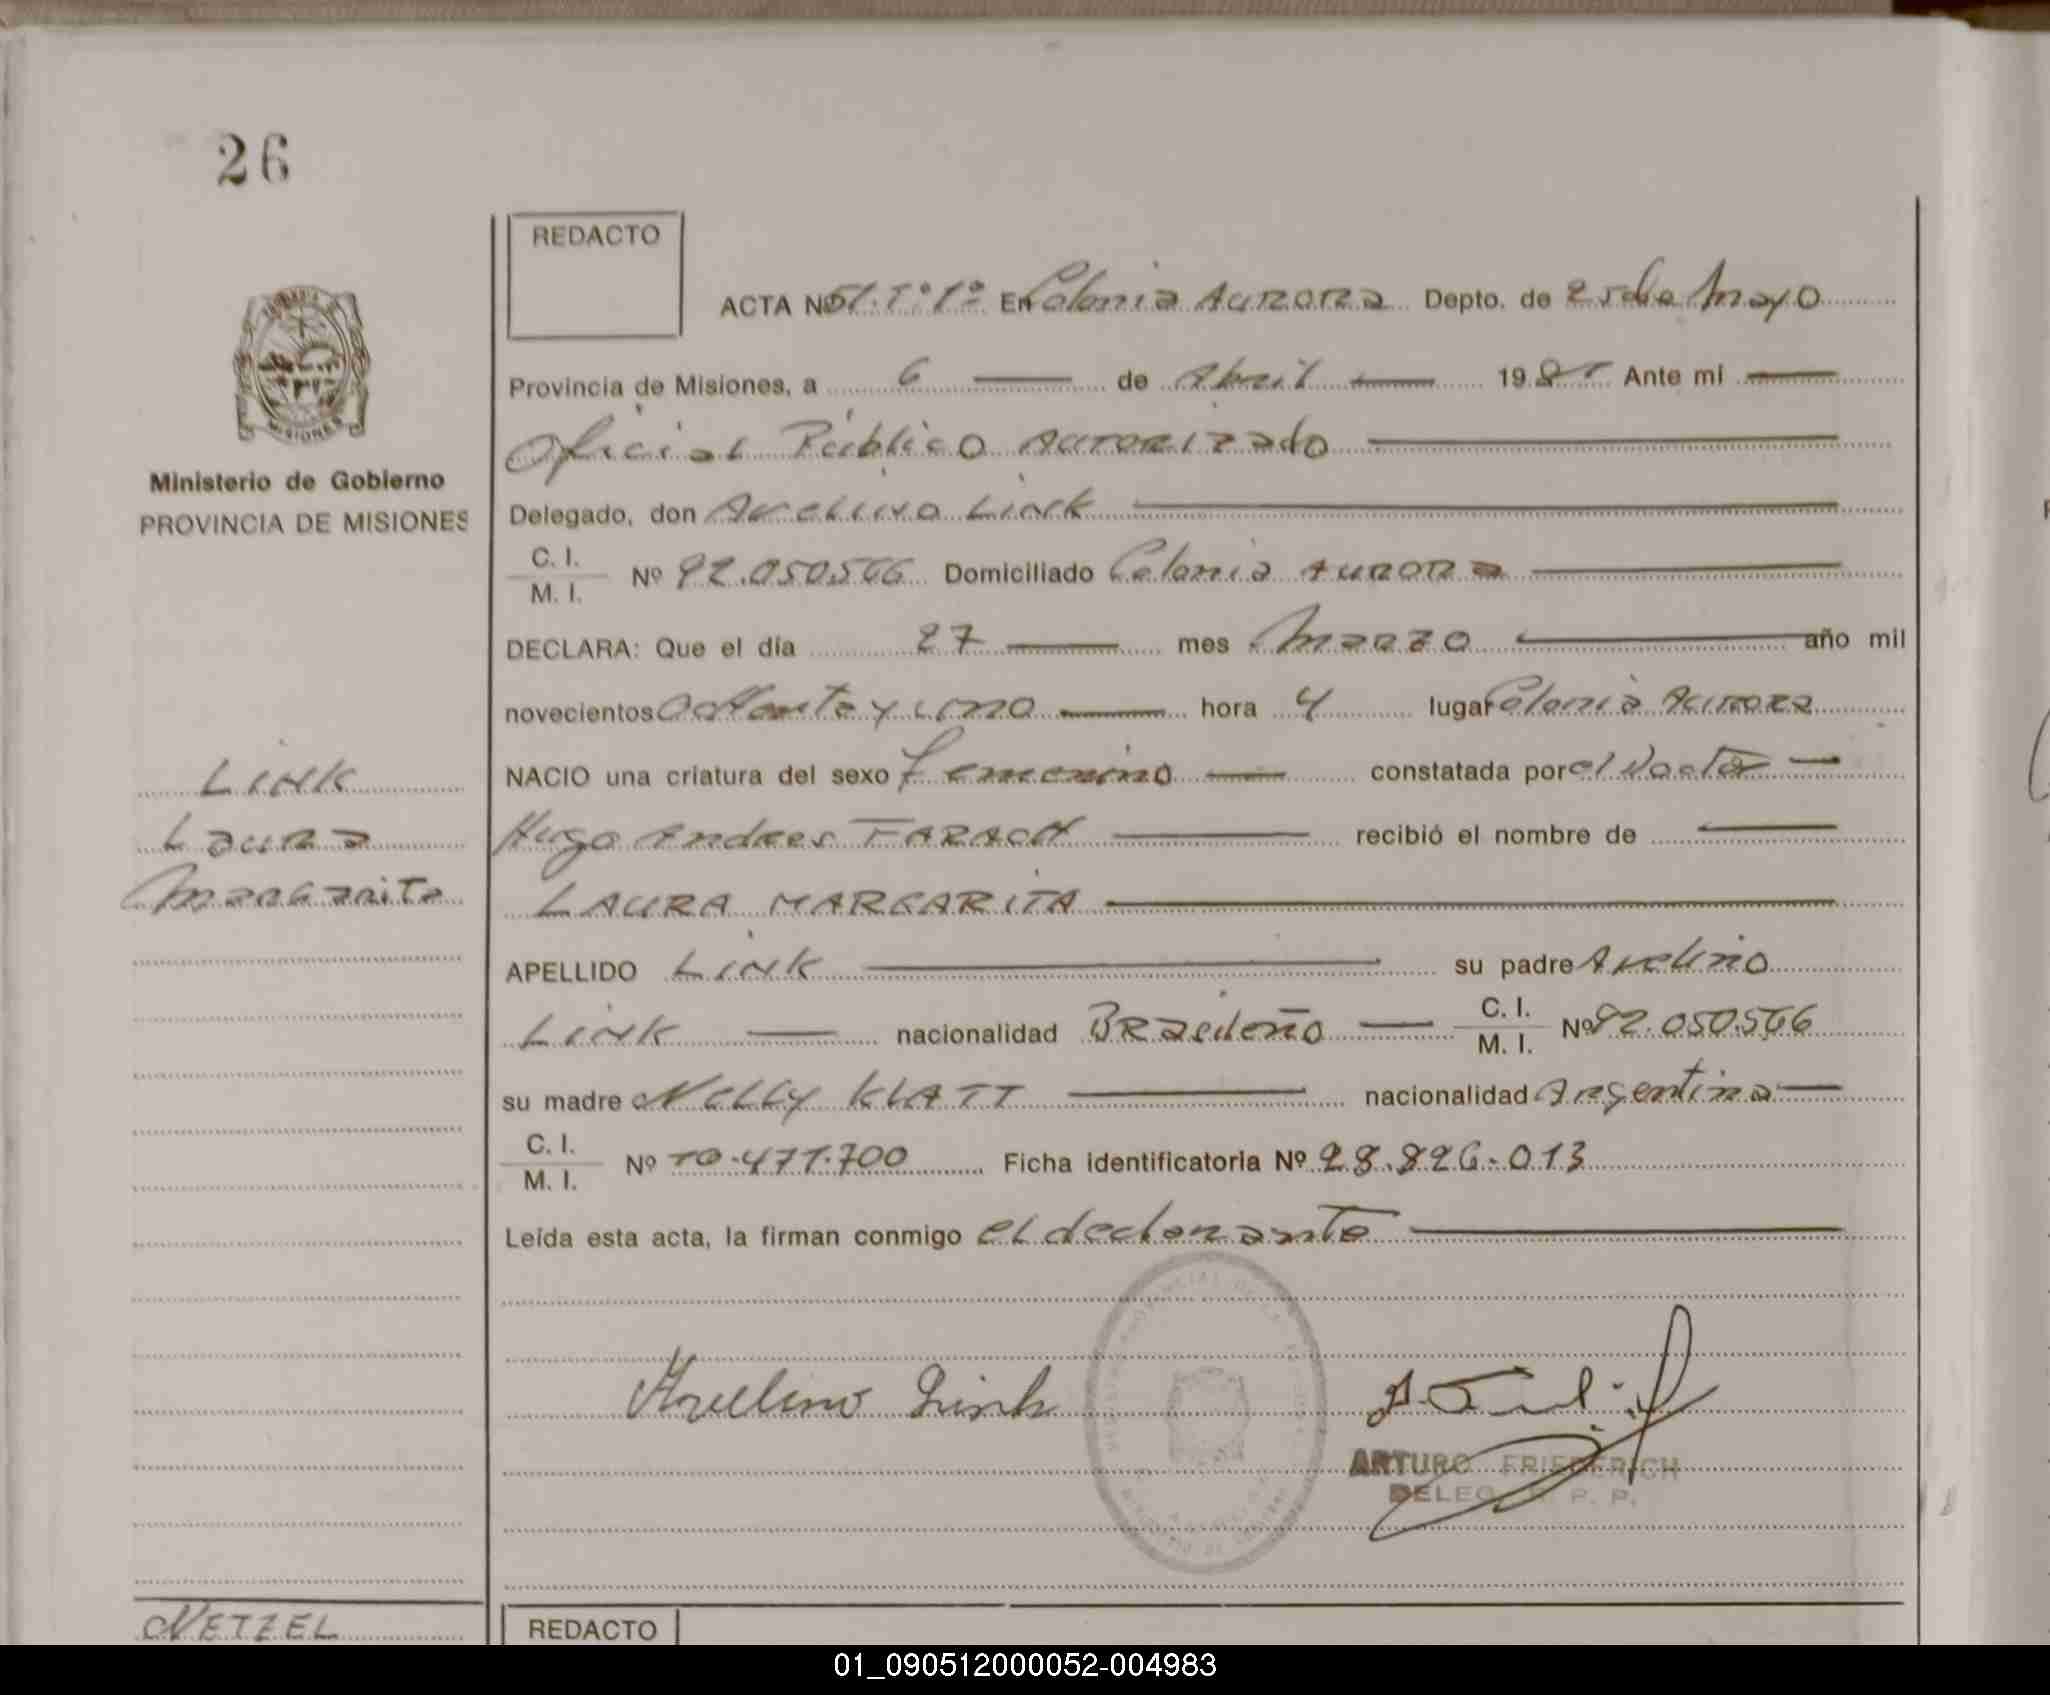 26
REDACTO
ACTA Nº 51.Tº1º En Colonia Aurora Depto. de 25 de Mayo
MISIONES
Provincia de Misiones, a 6 de Abril 1981 Ante mí
Oficial Público Autorizado
Ministerio de Gobierno
PROVINCIA DE MISIONES
Delegado, don Avelino Link
C. I.
M. I.
Nº 92.050.566 Domiciliado Colonia Aurora
DECLARA: Que el día 27 mes Marzo año mil
novecientos Ochenta y uno hora 4 lugar Colonia Aurora
Link
Laura
Margarita
NACIO una criatura del sexo femenino constatada por el Doctor
Hugo Andres FARACH recibió el nombre de
LAURA MARGARITA
APELLIDO Link su padre Avelino
Link nacionalidad Brasileño C. I. M. I. Nº 92.050.566
su madre Nelly KLATT nacionalidad Argentina
C. I.
M. I.
Nº 10.471.700 Ficha identificatoria Nº 28.826.013
Leída esta acta, la firman conmigo el declarante
Avelino Link
ARTURO FRIEDERICH
DELEG. R. P. P.
NETZEL
REDACTO
01_090512000052-004983